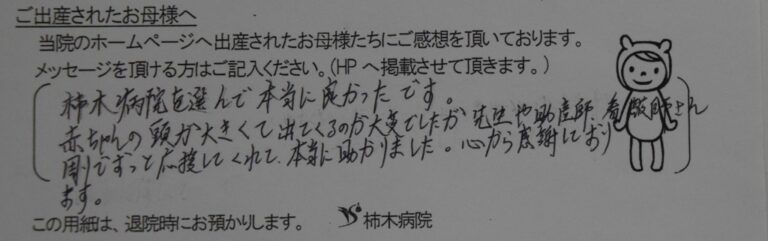 ご出産されたお母様へ
当院のホームページへ出産されたお母様たちにご感想を頂いております。
メッセージを頂ける方はご記入ください。(HPへ掲載させて頂きます。)
柿木病院を選んで本当に良かったです。
赤ちゃんの頭が大きくて出てくるのが大変でしたが先生や助産師、看護師さん
周りでずっと応援してくれて、本当に助かりました。心から感謝しており
ます。
この用紙は、退院時にお預かりします。 柿木病院